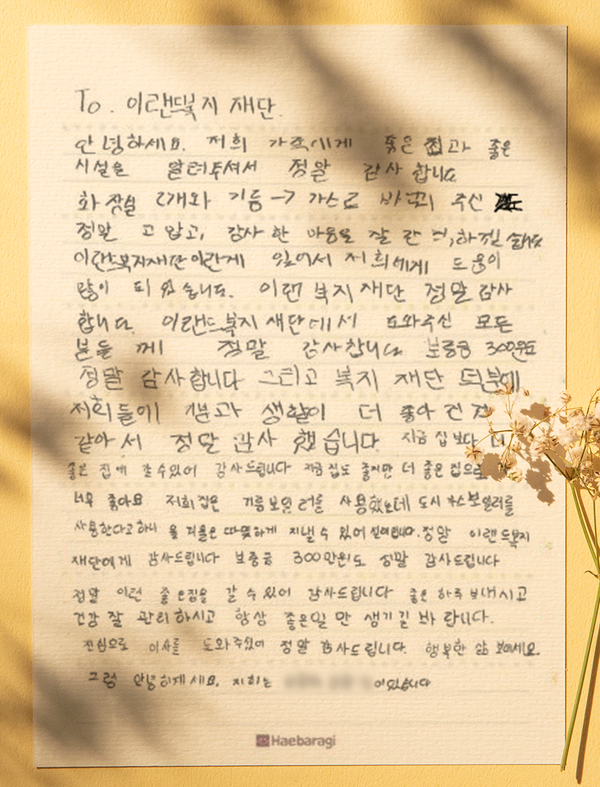 To. 이랜드복지 재단.
안녕하세요. 저희 가족에게 좋은 집과 좋은
시설을 알려주셔서 정말 감사 합니다
화장실 2개와 기름→가스로 바꿔 주신
정말 고맙고, 감사한 마음을 잘 간직하겠습니다
이랜드복지재단 이란게 있어서 저희에게 도움이
많이 되었습니다. 이랜드복지재단 정말 감사
합니다. 이랜드복지재단에서 도와주신 모든
분들 께 정말 감사합니다 보증금 300만원도
정말 감사합니다 그리고 복지 재단 덕분에
저희들이 기분과 생활이 더 좋아 진 것
같아서 정말 감사 했습니다 지금 집보다 더
좋은 집에 갈수있어 감사드립니다 지금 집도 좋지만 더 좋은 집으로
너무 좋아요 저희 집은 기름보일러를 사용했는데 도시가스보일러를
사용한다고하니 올 겨울은 따뜻하게 지낼 수 있어 정말 이랜드복지
재단에게 감사드립니다 보증금 300만원도 정말 감사드립니다
정말 이런 좋은집을 갈 수 있어 감사드립니다 좋은 하루 보내시고
건강 잘 관리하시고 항상 좋은일만 생기길 바랍니다.
진심으로 이사를 도와주셔서 정말 감사드립니다. 행복한 삶 보내세요.
그럼 안녕히계세요. 저희는 이었습니다
Haebaragi